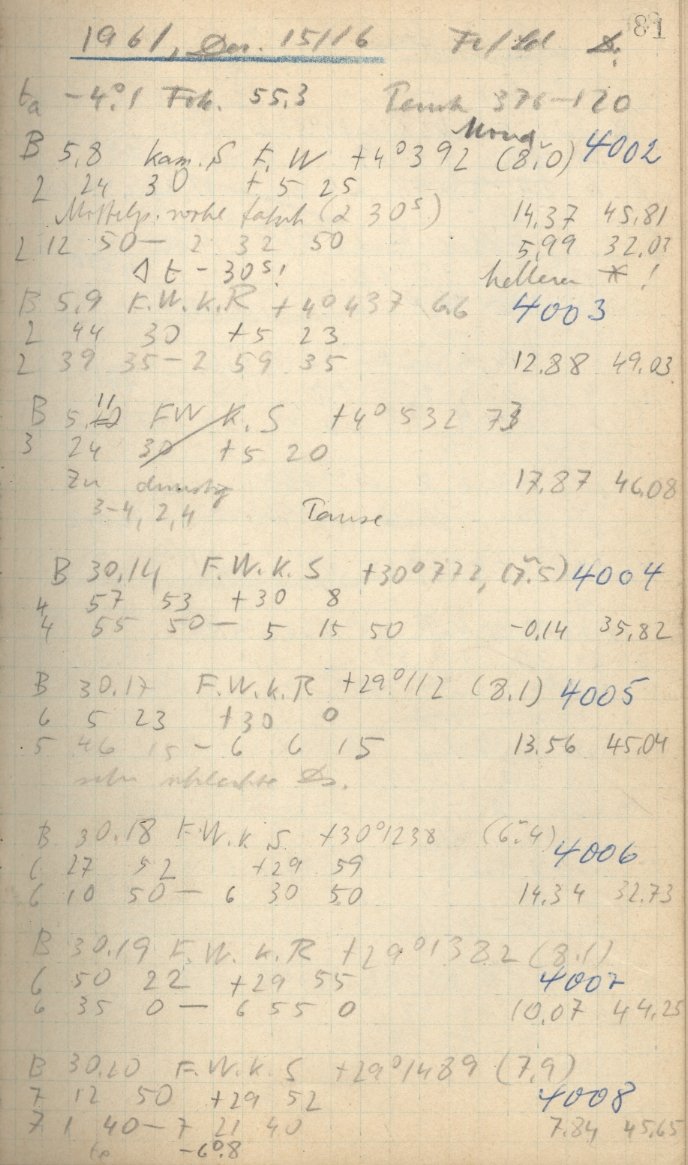 81
1961, Dez. 15/16
ta -4°.1 Fok. 55,3 376-120
Mond
B 5,8 Kam. S F. W +4°392 (8.0) 4002
2 24 30 +5 25
(2 30s) 14,37 45,81
2 12 50 — 2 32 50 5,99 32,03
Δt - 30s! hellerer * !
B 5,9 F.W.K.R +4°437 6.6 4003
2 44 30 +5 23
2 39 35 — 2 59 35 12,88 49,03
B 5,11 FW K.S +4°532 73
3 24 30 +5 20
Zu dunstig 17,87 46,08
3-4, 2,4 Pause
B 30,14 F.W.K.S +30°772, (7.5) 4004
4 57 53 +30 8
4 55 50 — 5 15 50 -0,14 35,82
B 30,17 F.W.K.R +29°112 (8.1) 4005
6 5 23 +30 0
5 46 15 — 6 6 15 13,56 45,04
sehr schlechte
B 30,18 F.W.K.S +30°1238 (6.4) 4006
6 27 52 +29 59
6 10 50 — 6 30 50 14,34 32,73
B 30,19 F.W.K.R +29°1382 (8.1)
6 50 22 +29 55 4007
6 35 0 — 6 55 0 10,07 44,25
B 30,20 F.W.K.S +29°1489 (7,9)
7 12 50 +29 52 4008
7 1 40 — 7 21 40 7,84 45,65
-6°.8